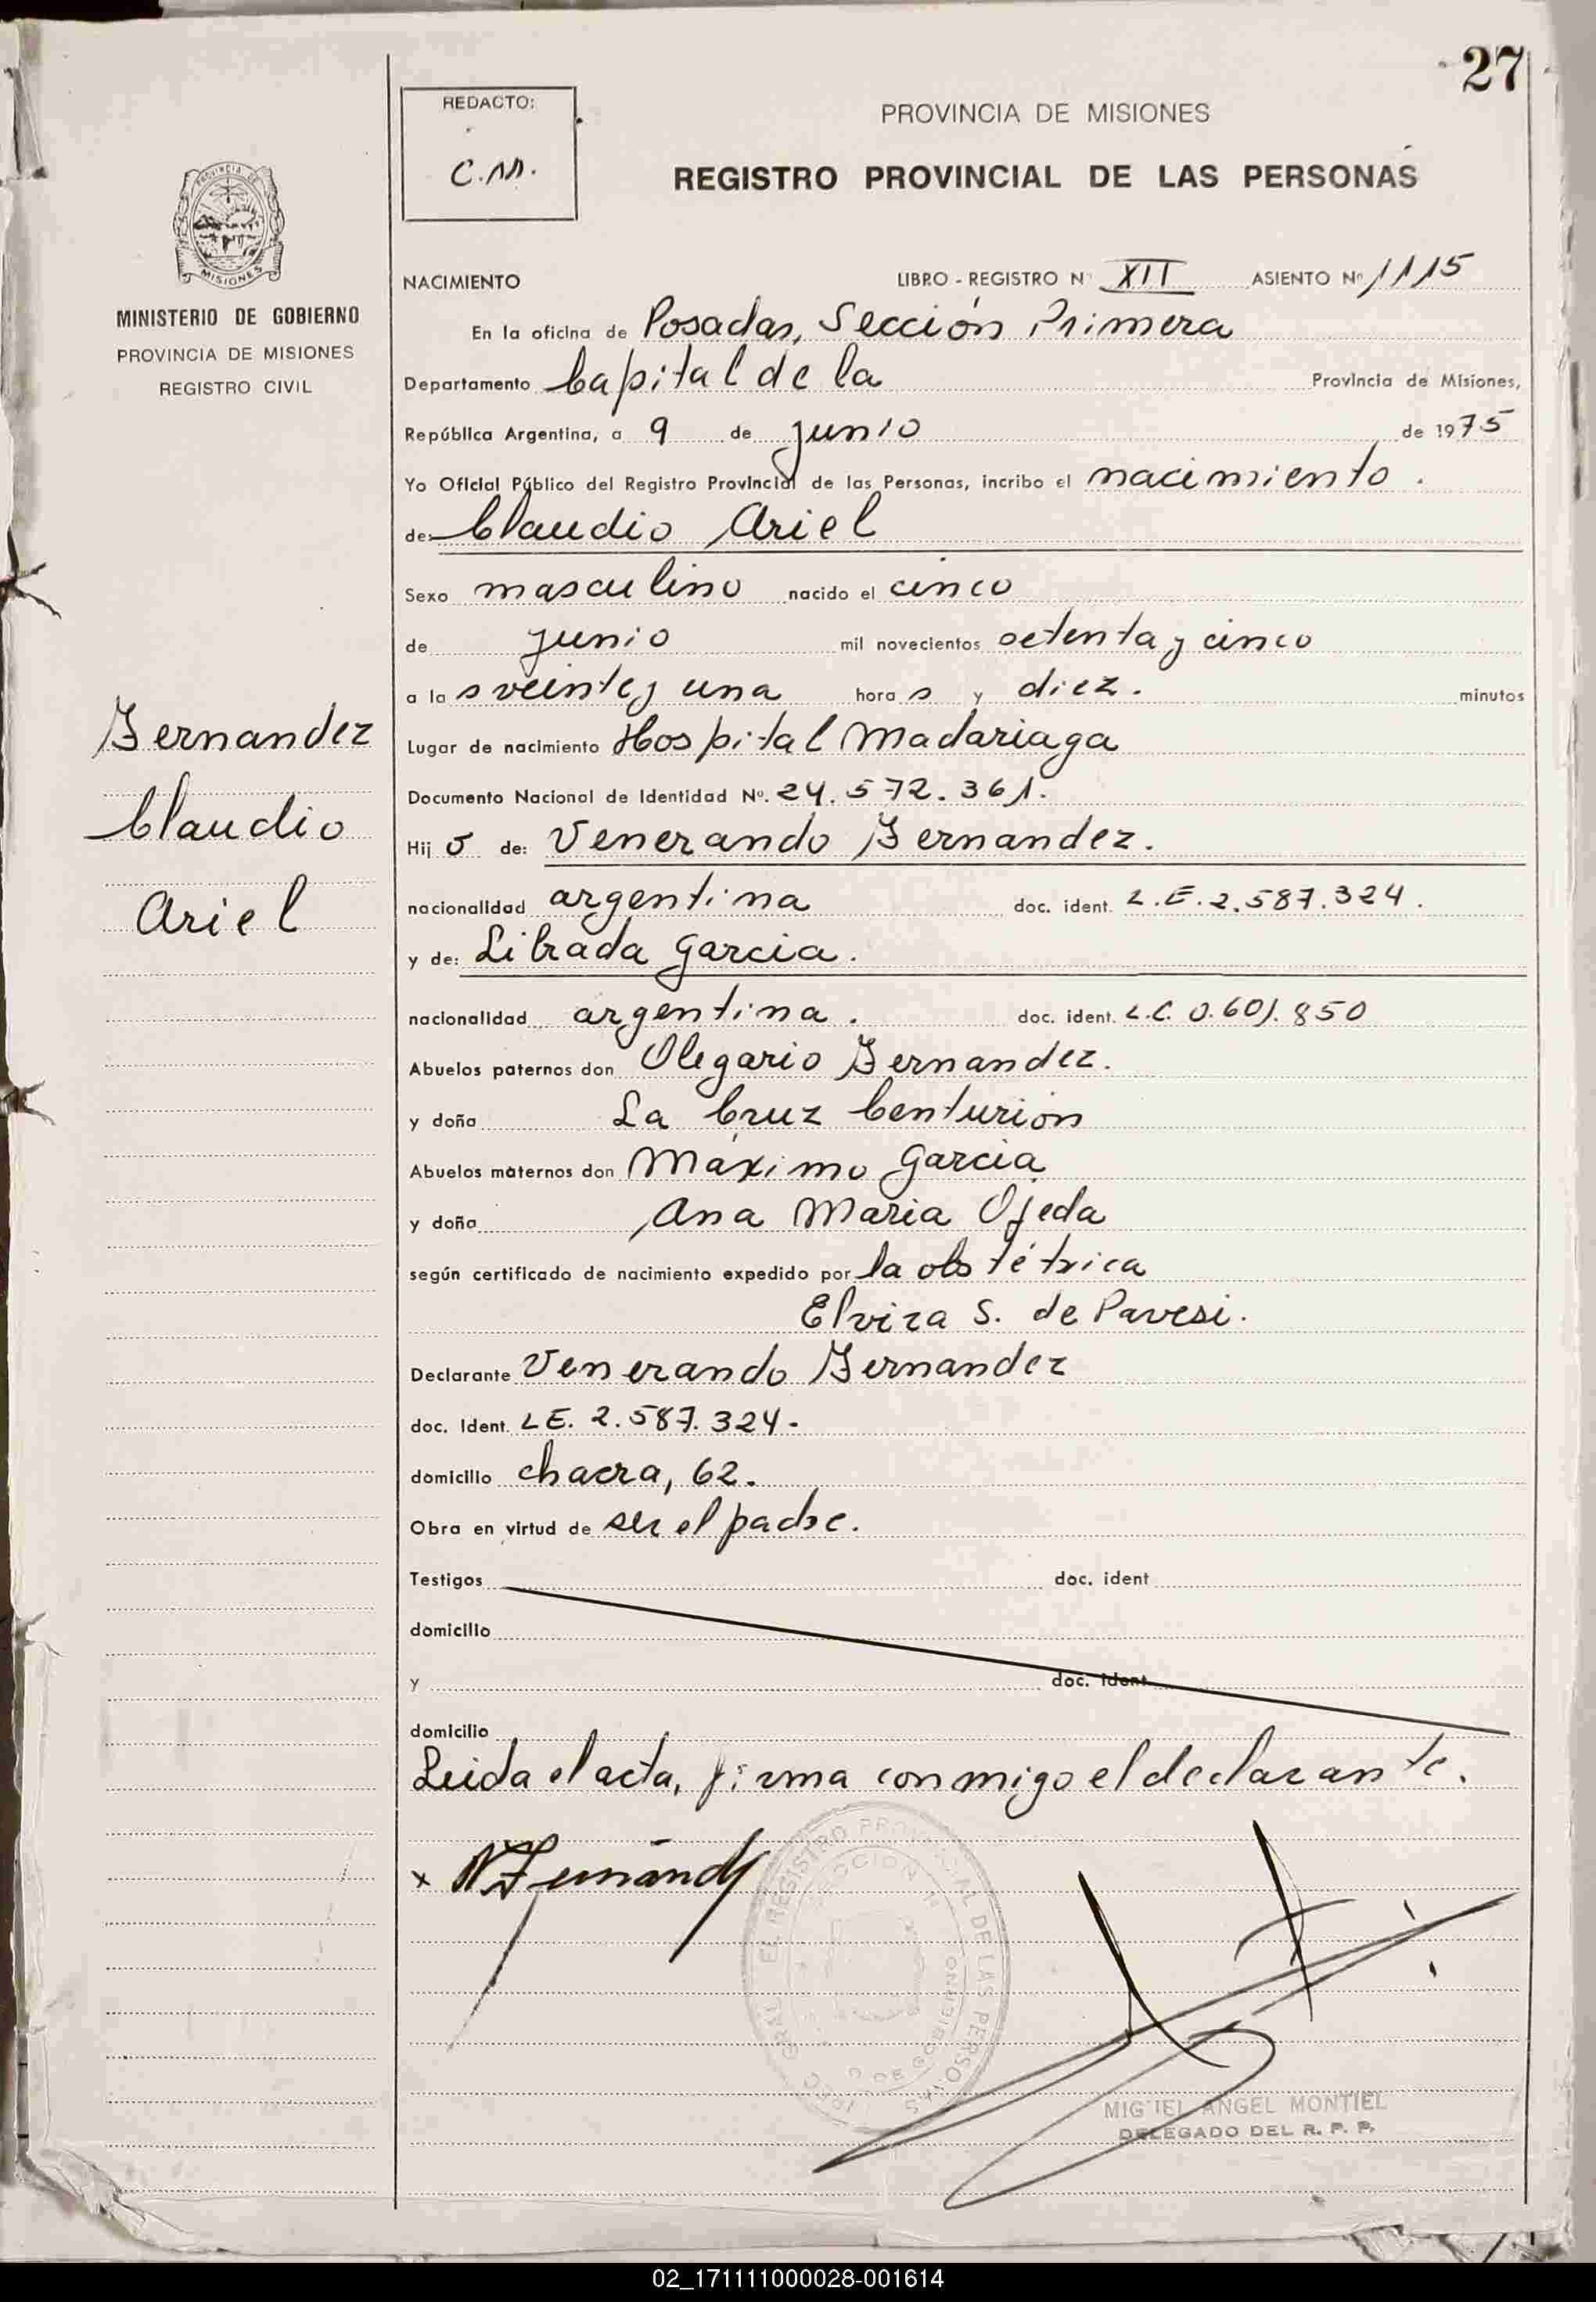 27
REDACTO:
C.M.
PROVINCIA DE MISIONES
REGISTRO PROVINCIAL DE LAS PERSONAS
MISIONES
MINISTERIO DE GOBIERNO
PROVINCIA DE MISIONES
REGISTRO CIVIL
NACIMIENTO LIBRO - REGISTRO Nº XII ASIENTO Nº 1115
En la oficina de Posadas, Sección Primera
Departamento Capital de la Provincia de Misiones,
República Argentina, a 9 de junio de 1975
Yo Oficial Público del Registro Provincial de las Personas, incribo el nacimiento.
de: Claudio Ariel
Sexo masculino nacido el cinco
de junio mil novecientos setenta y cinco
a la s veinte y una hora s y diez. minutos
Fernandez
Claudio
Ariel
Lugar de nacimiento Hospital Madariaga
Documento Nacional de Identidad Nº. 24.572.361.
Hij o de: Venerando Fernandez.
nacionalidad argentina doc. ident. L.E. 2.587.324.
y de: Librada Garcia.
nacionalidad argentina. doc. ident. L.C. 0.601.850
Abuelos paternos don Olegario Fernandez.
y doña La Cruz Centurión
Abuelos maternos don Máximo Garcia
y doña Ana Maria Ojeda
según certificado de nacimiento expedido por la obstétrica
Elvira S. de Pavesi.
Declarante Venerando Fernandez
doc. Ident. LE. 2.587.324-
domicilio chacra, 62.
Obra en virtud de ser el padre.
Testigos doc. ident
domicilio
y doc. ident
domicilio
Leida el acta, firma conmigo el declarante.
x
REGISTRO PROVINCIAL DE LAS PERSONAS
MIGUEL ANGEL MONTIEL
DELEGADO DEL R. P. P.
02_171111000028-001614